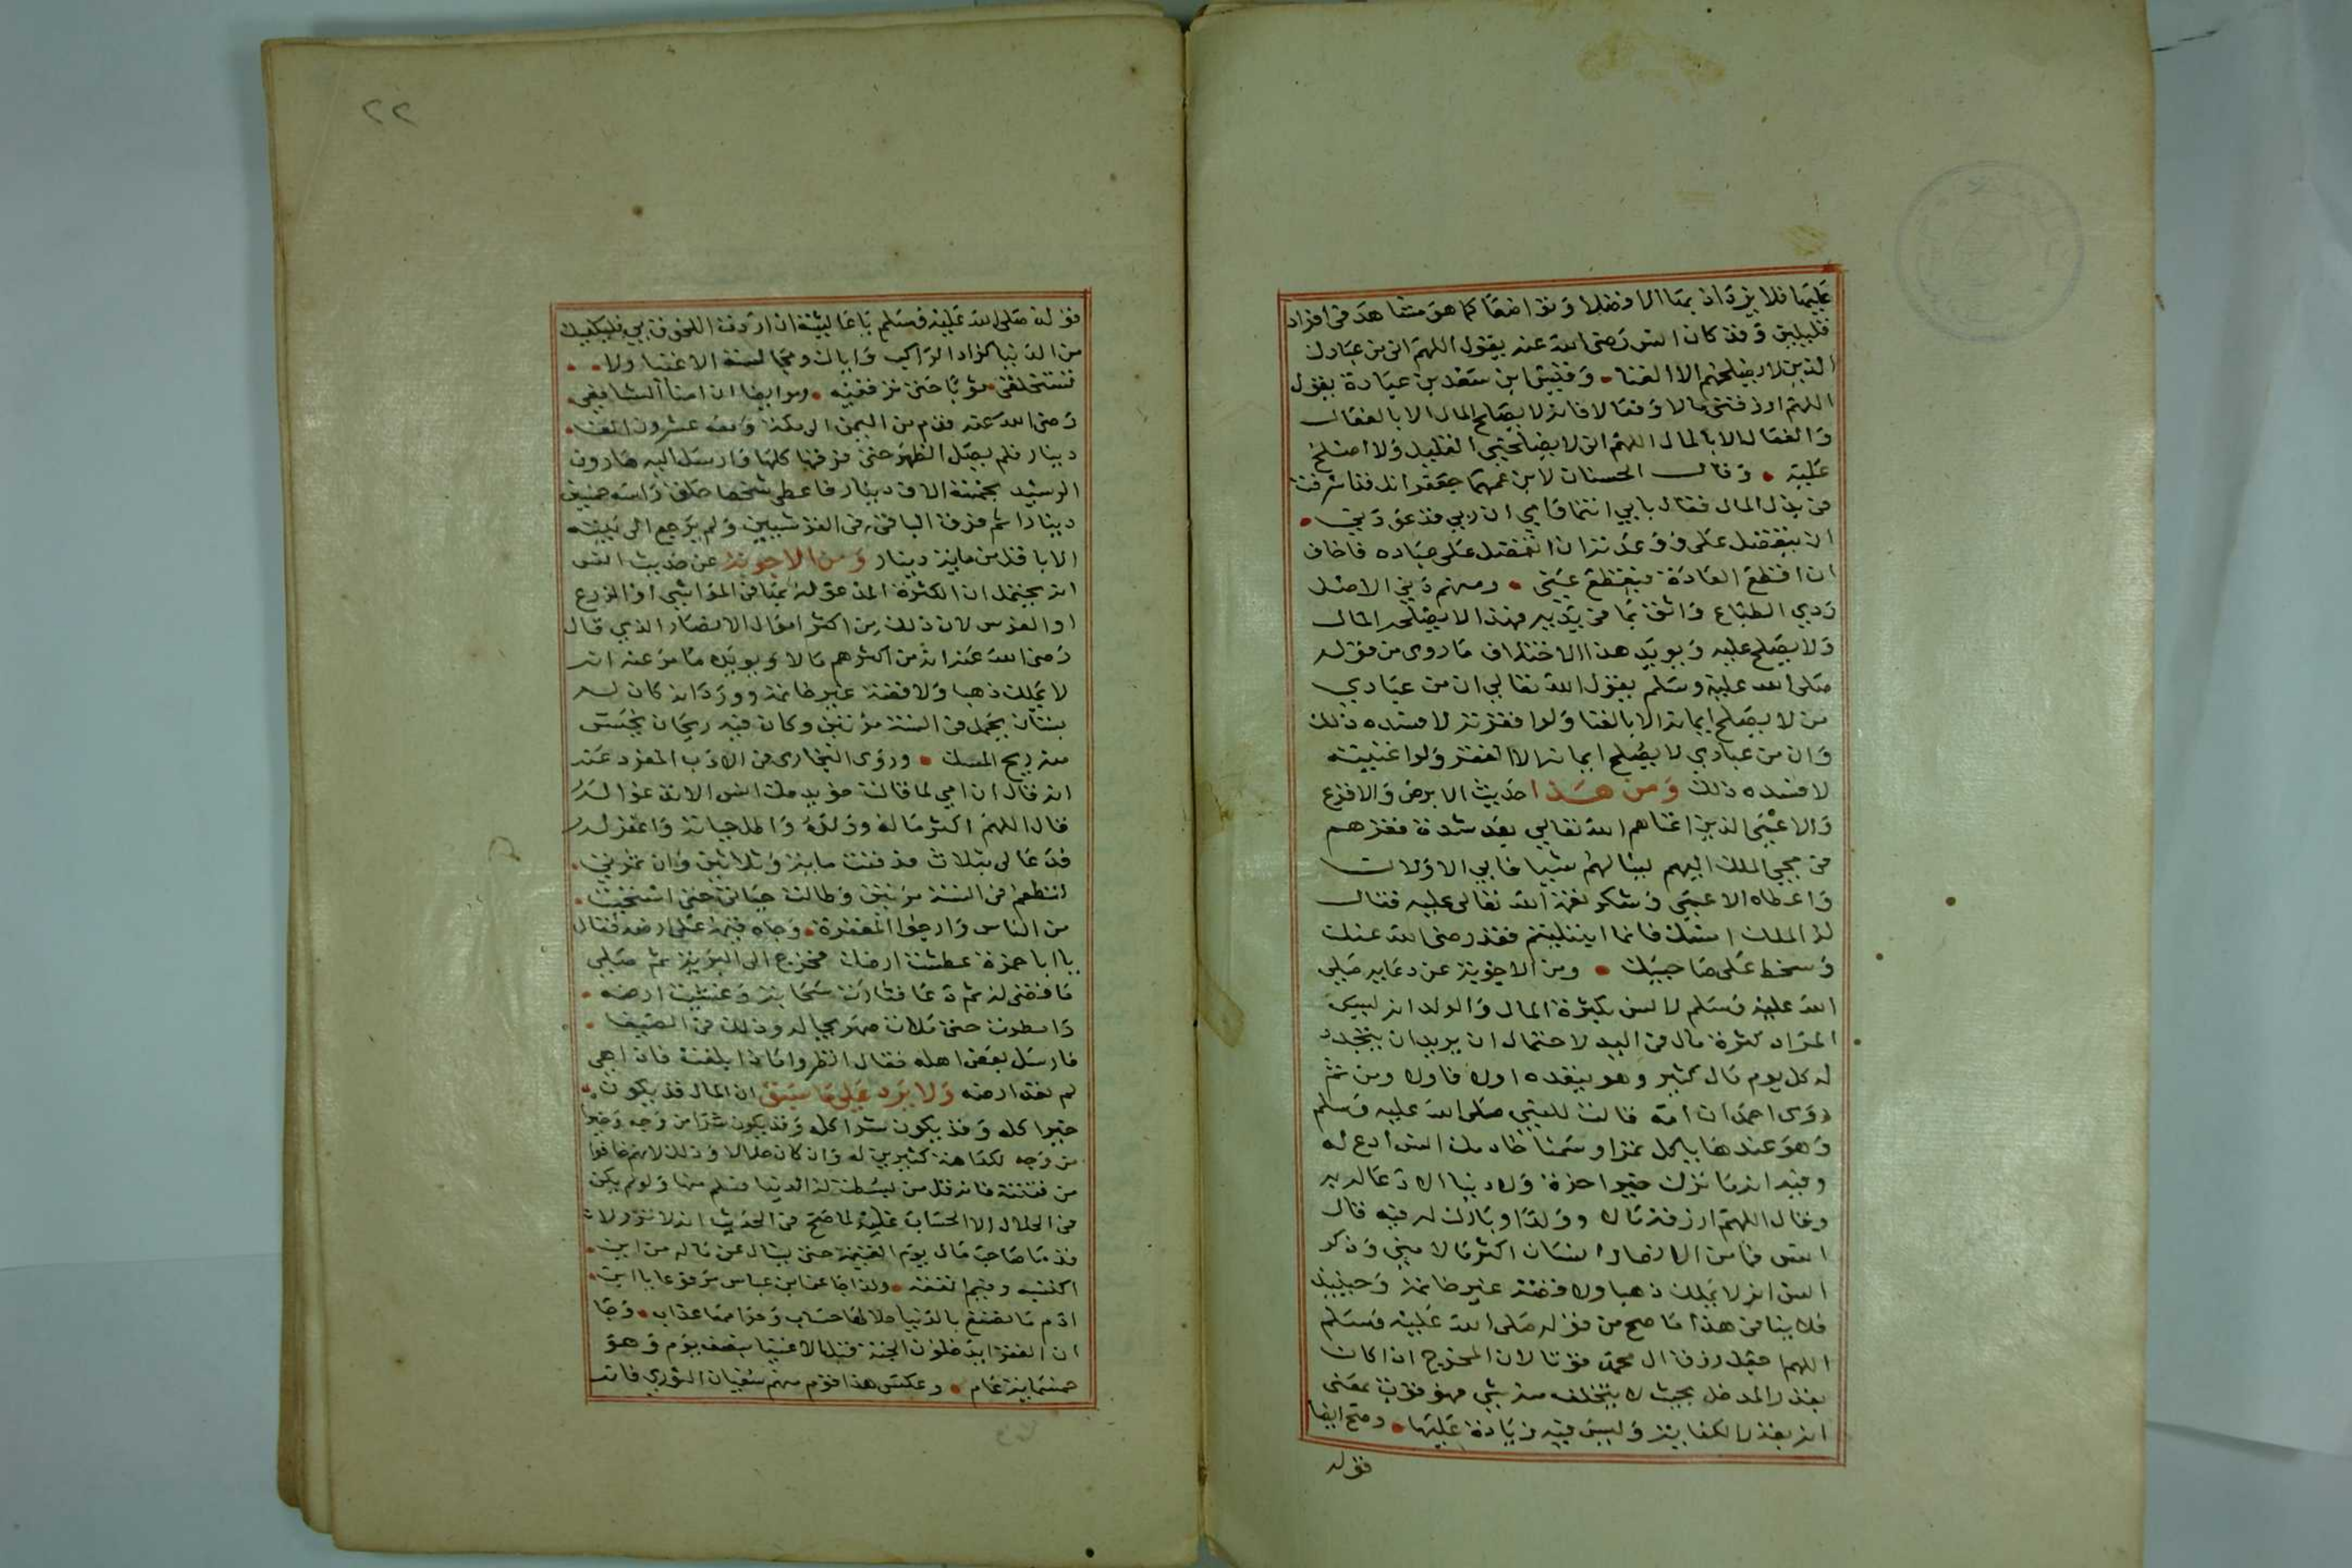 عليها فلا يزدان بها الا فضلا وتواضعا كما هو مشاهد في افراد
قليلين وقد كان انس رضي الله عنه يقول اللهم اني من عبادك
الذين لا يصلحهم الا الغنا وقيس ابن سعد بن عبادة يقول
اللهم ارزقني مالا وفعالا فانه لا يصلح المال الا بالفعال
والفعال الا بالمال اللهم اني لا يصلحني القليل ولا اصلح
عليه وقال الحسنان لابن عمهما جعفر انك قد اسرفت
في بذل المال فقال بابي انتما وامي ان ربي قد عودني
ان يتفضل علي وعودته ان اتفضل على عباده فاخاف
ان اقطع العادة فيقطع عني ومنهم دني الاصل
ردي الطباع واثق بما في يديه فهذا لا يصلحه المال
ولا يصلح عليه ويويد هذا الاختلاف ما روى من قوله
صلى الله عليه وسلم يقول الله تعالى ان من عبادي
من لا يصلح ايمانه الا بالغنا ولو افقرته لافسده ذلك
وان من عبادي لا يصلح ايمانه الا الفقر ولو اغنيته
لافسده ذلك ومن هذا حديث الابرص والاقرع
والاعمى الذين اغناهم الله تعالى بعد شدة فقرهم
في مجي الملك اليهم ليسالهم شيا فابى الاولان
واعطاه الاعمى وشكر نعمة الله تعالى عليه فقال
له الملك امسك فانما ابتليتم فقد رضي الله عنك
وسخط على صاحبيك ومن الاجوبة عن دعايه صلى
الله عليه وسلم لانس بكثرة المال والولد انه ليس
المراد كثرة مال في اليد لاحتمال ان يريد ان يتجدد
له كل يوم مال كثير وهو ينفده اولا فاولا ومن ثم
روى احمد ان امه قالت للنبي صلى الله عليه وسلم
وهو عندها ياكل تمرا وسمنا خادمك انس ادع له
وفيه انه ما ترك خير اخرة ولا دنيا الا دعا له به
وقال اللهم ارزقه مالا وولدا وبارك له فيه قال
انس فما من الانصار انسان اكثر مالا مني وذكر
انس انه لا يملك ذهبا ولا فضة غير خاتمه وحينيذ
فلا ينافي هذا ما صح من قوله صلى الله عليه وسلم
اللهم اجعل رزق ال محمد قوتا لان المخرج اذا كان
بقدر المدخل بحيث لا يتخلف منه شي فهو قوت بمعنى
انه بقدر الكفاية وليس فيه زيادة عليها وصح ايضا
قوله
٢٢
قوله صلى الله عليه وسلم يا عايشة ان اردت اللحوق بي فليكفيك
من الدنيا كزاد الراكب واياك ومجالسة الاغنيا ولا
تستخلقي ثوبا حتى ترقعيه ومر ايضا ان امامنا الشافعي
رضي الله عنه قدم من اليمن الى مكة ومعه عشرون الف
دينار فلم يصل الظهر حتى فرقها كلها وارسل اليه هارون
الرشيد بخمسة الاف دينار فاعطى شخصا حلق راسه خمسين
دينارا ثم فرق الباقي في القرشيين ولم يرجع الى بيته
الا باقل من ماية دينار ومن الاجوبة عن حديث انس
انه يحتمل ان الكثرة المدعو له بها في المواشي او الزرع
او الغرس لان ذلك من اكثر اموال الانصار الذي قال
رضي الله عنه انه من اكثرهم مالا ويويده ما مر عنه انه
لا يملك ذهبا ولا فضة غير خاتمه وورد انه كان له
بستان يحمل في السنة مرتين وكان فيه ريحان
منه ريح المسك وروى البخاري في الادب المفرد عنه
انه قال ان امي لما قالت خويدمك انس الا تدعو له
قال اللهم اكثر ماله وولده واطل حياته واغفر له
فدعا لي بثلاث فدفنت ماية وثلاثين وان ثمرتي
لتطعم في السنة مرتين وطالت حياتي حتى استحييت
من الناس وارجوا المغفرة وجاه قيمه على ارضه فقال
يا ابا حمزة عطشت ارضك فخرج الى البرية ثم صلى
ما قضى له ثم دعا فثارت سحابة وغشيت ارضه
وامطرت حتى ملات صهريجا له وذلك في الصيف
فارسل بعض اهله فقال انظروا ماذا بلغت فاذا هي
لم تعد ارضه ولا يرد على ما سبق ان المال قد يكون
خيرا كله وقد يكون شرا كله وقد يكون شرا من وجه وخيرا
من وجه لكراهة كثيرين له وان كان حلالا وذلك لانهم خافوا
من فتنته فانه قل من بسطت له الدنيا فسلم منها ولو لم يكن
في الحلال الا الحساب عليه لما صح في الحديث انه لا تزولان
قدما صاحب مال يوم القيمة حتى يسال عن ماله من اين
اكتسبه وفيم انفقه ولذا جا عن ابن عباس مرفوعا يا ابن
ادم ما تصنع بالدنيا حلالها حساب وحرامها عذاب وجا
ان الفقرا يدخلون الجنة قبل الاغنيا بنصف يوم وهو
خمسماية عام وعكس هذا قوم منهم سفيان الثوري فانه